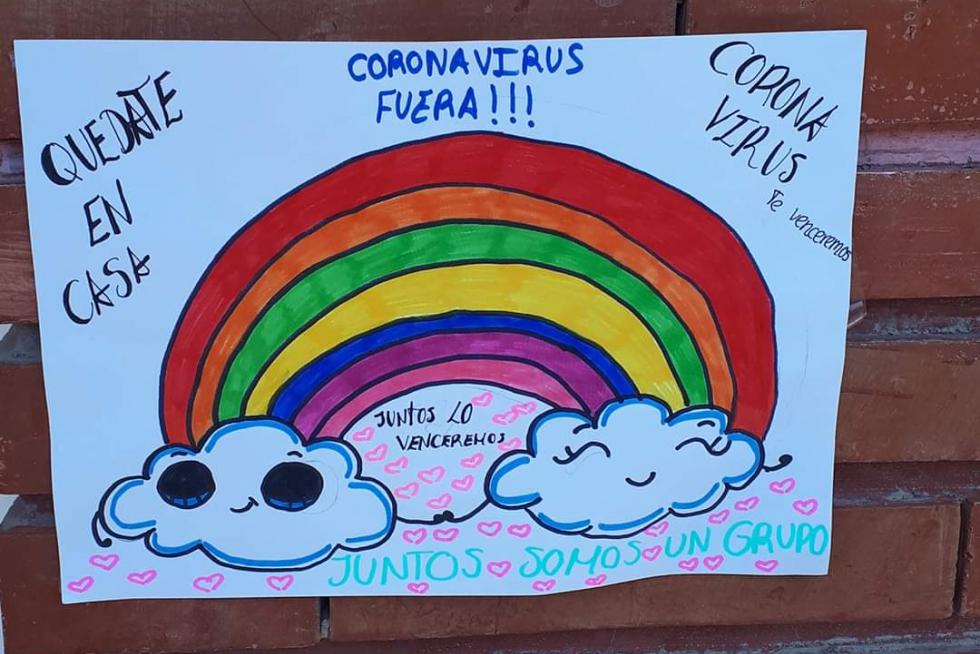 QUEDATE
EN
CASA
CORONAVIRUS
FUERA!!!
CORONA
VIRUS
Te venceremos
JUNTOS LO
VENCEREMOS
JUNTOS SOMOS UN GRUPO